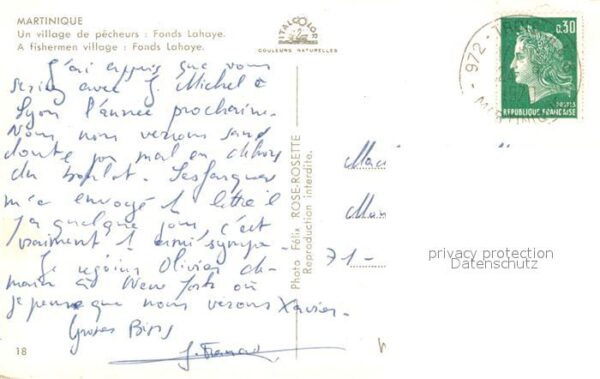 MARTINIQUE
Un village de pêcheurs : Fonds Lahaye.
A fishermen village : Fonds Lahaye.
ITALCOLOR
COULEURS NATURELLES
0.30
POSTES
REPUBLIQUE FRANÇAISE
972
J'ai appris que vous
seriez avec J. Michel à
Lyon l'année prochaine.
Nous nous verrons sans
doute pas mal en dehors
du boulot.
m'a envoyé 1 lettre il
y a quelque jours, c'est
vraiment 1 ami sympa.
Je rejoins Olivier de-
main à New York où
je pense que nous verrons Xavier.
Grosses Bises
Photo Félix ROSE-ROSETTE
Reproduction interdite.
71-
privacy protection
Datenschutz
18